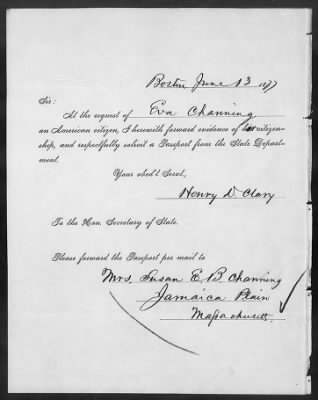 Boston June 13 1877
Sir:
At the request of Eva Channing
an American citizen, I herewith forward evidence of her citizen-
ship, and respectfully solicit a Passport from the State Depart-
ment.
Your obed't Servt,
Henry D. Clary
To the Hon. Secretary of State.
Please forward the Passport per mail to
Mrs. Susan E. B. Channing
Jamaica Plain
Massachusetts